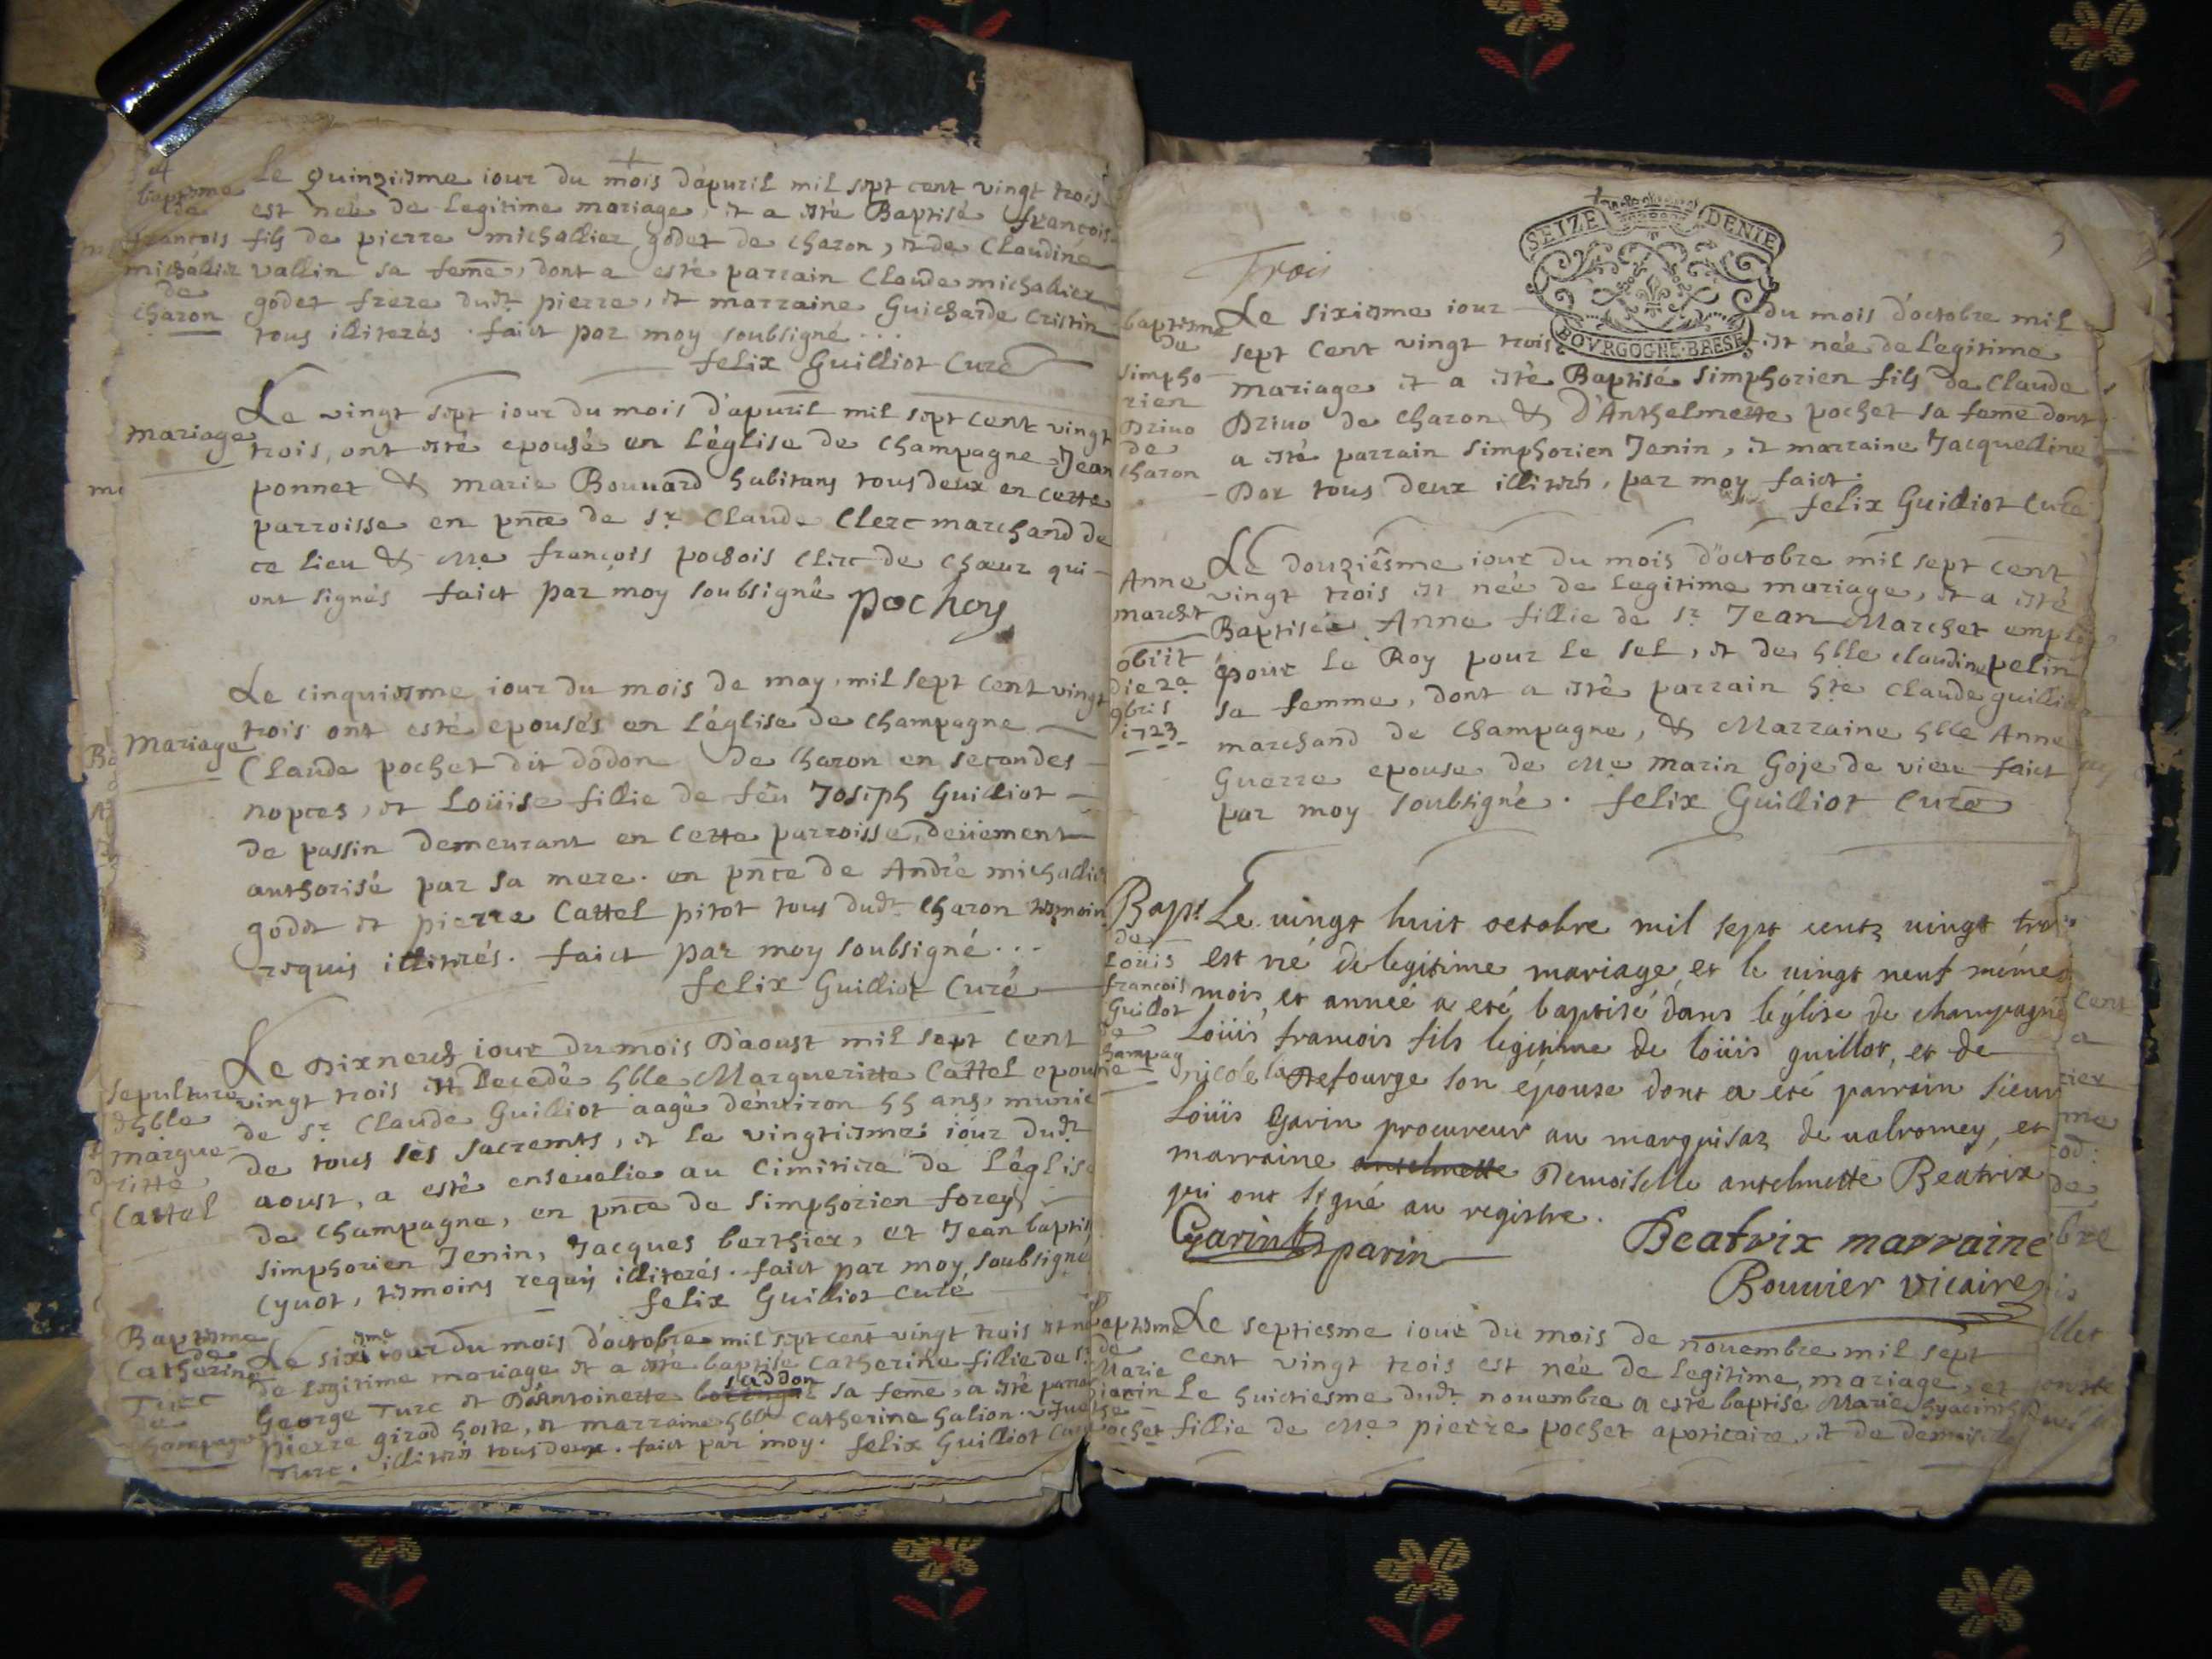 et
baptisme
de
françois
michallier
de
charon
Le quinziesme iour du mois d'apuril mil sept cent vingt trois
est née de Legitime mariage, et a esté Baptisé françois
fils de pierre michallier godet de charon, et de Claudine
vallin sa feme, dont a esté parrain Claude michallier
godet frere dudt pierre, et marraine Guicharde Cristin
tous illiterés . faict par moy soubsigné...
felix Guilliot Curé
mariage
Le vingt sept iour du mois d'apuril mil sept cent vingt
trois, ont esté epousé en L'église de Champagne Jean
ponnet & marie Bouuard habitans tous deux en cette
parroisse en pnce de Sr Claude Clerc marchand de
ce lieu & Me françois pochois clerc de chœur qui
ont signés faict par moy soubsigné pochoy
Mariage
Le cinquiesme iour du mois de may, mil sept cent vingt
trois ont esté epousés en L'église de Champagne
Claude pochet dit dodon de Charon en secondes
nopces, et Loüise fillie de feu Joseph Guilliot
de passin demeurant en Cette parroisse, deüement
authorisé par sa mere. en pnce de André michallier
godet et pierre Cattel pitot tous dudt Charon tesmoin
requis illiterés. faict par moy soubsigné...
felix Guilliot Curé
sepulture
d'hble
margue
ritte
Cattel
Le Dixneuf iour du mois D'aoust mil sept cent
vingt trois est Decedé hble Margueritte Cattel epouse
de Sr Claude Guilliot aagé d'enuiron 55 ans munie
de tous ses sacremts, et le vingtiesme iour dudt
aoust, a esté enseuelie au Cimitiere de L'église
de Champagne, en pnce de Simphorien forey
Simphorien Jenin, Jacques berthier, et Jean baptiste
Cyuot, tesmoins requis illiterés. faict par moy soubsigné
felix Guilliot Curé
Baptesme
de
Catherine
Turc
de
Champagne
Le sixiesme iour du mois d'octobre mil sept cent vingt trois est née
de Legitime mariage et a esté baptisé Catherine fillie de Sr
George Turc et D'Antoinette saddon sa feme, a esté parrain
pierre girod hoste, et marraine hble Catherine halion
Turc. illiterés tous deux. faict par moy. felix Guilliot Curé
SEIZE DENIE
BOVRGOGNE·BRESE
Trois
baptisme
de
simpho
rien
Driuo
de
charon
Le sixiesme iour du mois d'octobre mil
sept cent vingt trois est née de Legitime
mariage et a esté Baptisé simphorien fils de Claude
Driuo de charon & d'Anthelmette pochet sa feme dont
a esté parrain simphorien Jenin, et marraine Jacquelline
Dor tous deux illiterés, par moy faict.
felix Guilliot Curé
Anne
marchet
obiit
die 2a
9bris
1723
Le douziêsme iour du mois d'octobre mil sept cent
vingt trois est née de Legitime mariage, et a esté
Baptisée Anne fillie de Sr Jean Marchet employ
pour Le Roy pour le sel, et de hble claudine pelin
sa femme, dont a esté parrain hte Claude guilliot
marchand de Champagne, & Marraine hble Anne
Guerre epouse de Me marin Goje de vieu faict
par moy soubsigné. felix Guilliot Curé
Bapt
de
Loüis
françois
Guillot
de
champag
ne
Le vingt huit octobre mil sept cents vingt trois
est né de legitime mariage et le vingt neuf même
mois, et anneé a eté baptisé dans l'église de champagne
Loüis francois fils legitime de loüis guillot, et de
nicole la Defourge son épouse dont a eté parrain sieur
Loüis Garin procureur au marquisat de valromey, et
marraine antelmette Demoiselle antelmette Beatrix
qui ont signé au registre.
Garin parin
Beatrix marraine
Bouuier vicaire
Baptesme
de
Marie
hiacin
the
pochet
Le septiesme iour du mois de nouembre mil sept
cent vingt trois est née de Legitime mariage, et
Le huictiesme dudt nouembre a esté baptisé Marie hyacinthe
fillie de Me pierre pochet apoticaire, et de demoiselle